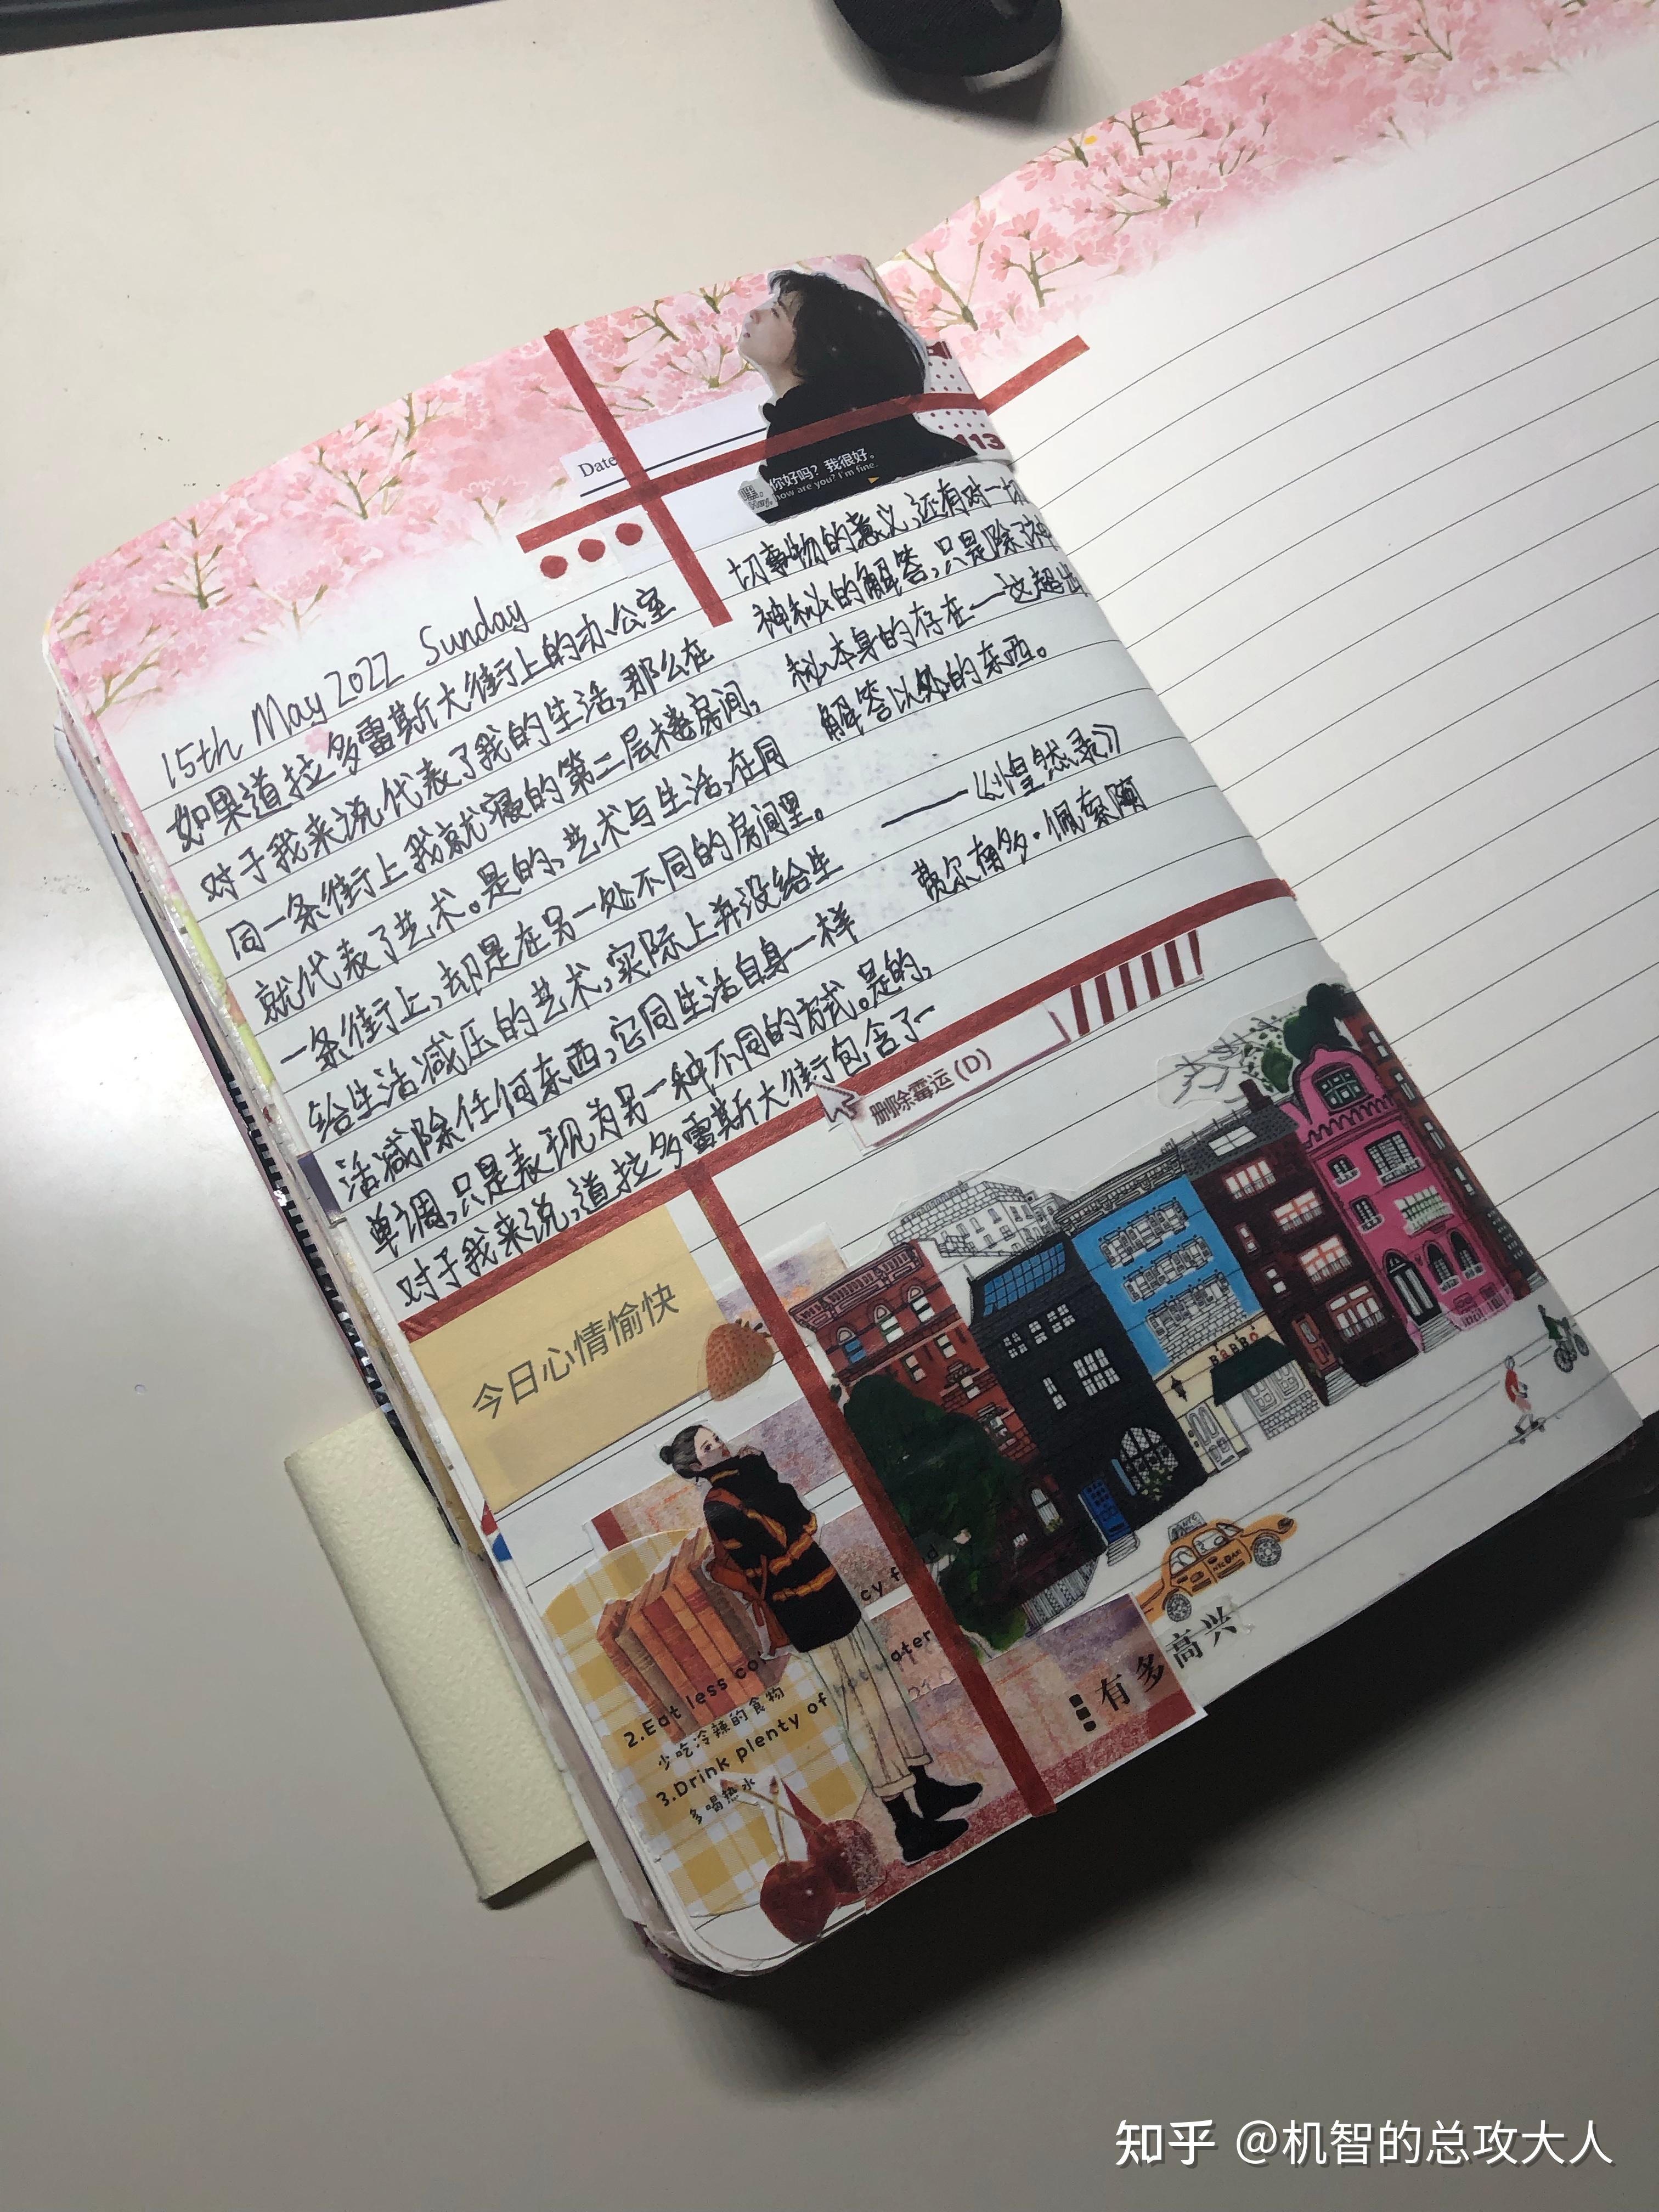 Date
113
你好吗？我很好。
how are you? I'm fine.
15th May 2022 Sunday
如果道拉多雷斯大街上的办公室
对于我来说代表了我的生活,那么在
同一条街上我就寝的第二层楼房间,
就代表了艺术。是的、艺术与生活,在同
一条街上,却是在另一处不同的房间里。
给生活减压的艺术,实际上并没给生
活减除任何东西,它同生活自身一样
单调,只是表现为另一种不同的方式。是的,
对于我来说,道拉多雷斯大街包含了一
切事物的意义,还有对一切
神秘的解答,只是除了神
秘本身的存在——这超出
解答以外的东西。
——《惶然录》
费尔南多·佩索阿
删除霉运(D)
今日心情愉快
BABBO
2.Eat less co
少吃冷辣的食物
3.Drink plenty of hot water
多喝热水
有多高兴
知乎 @机智的总攻大人